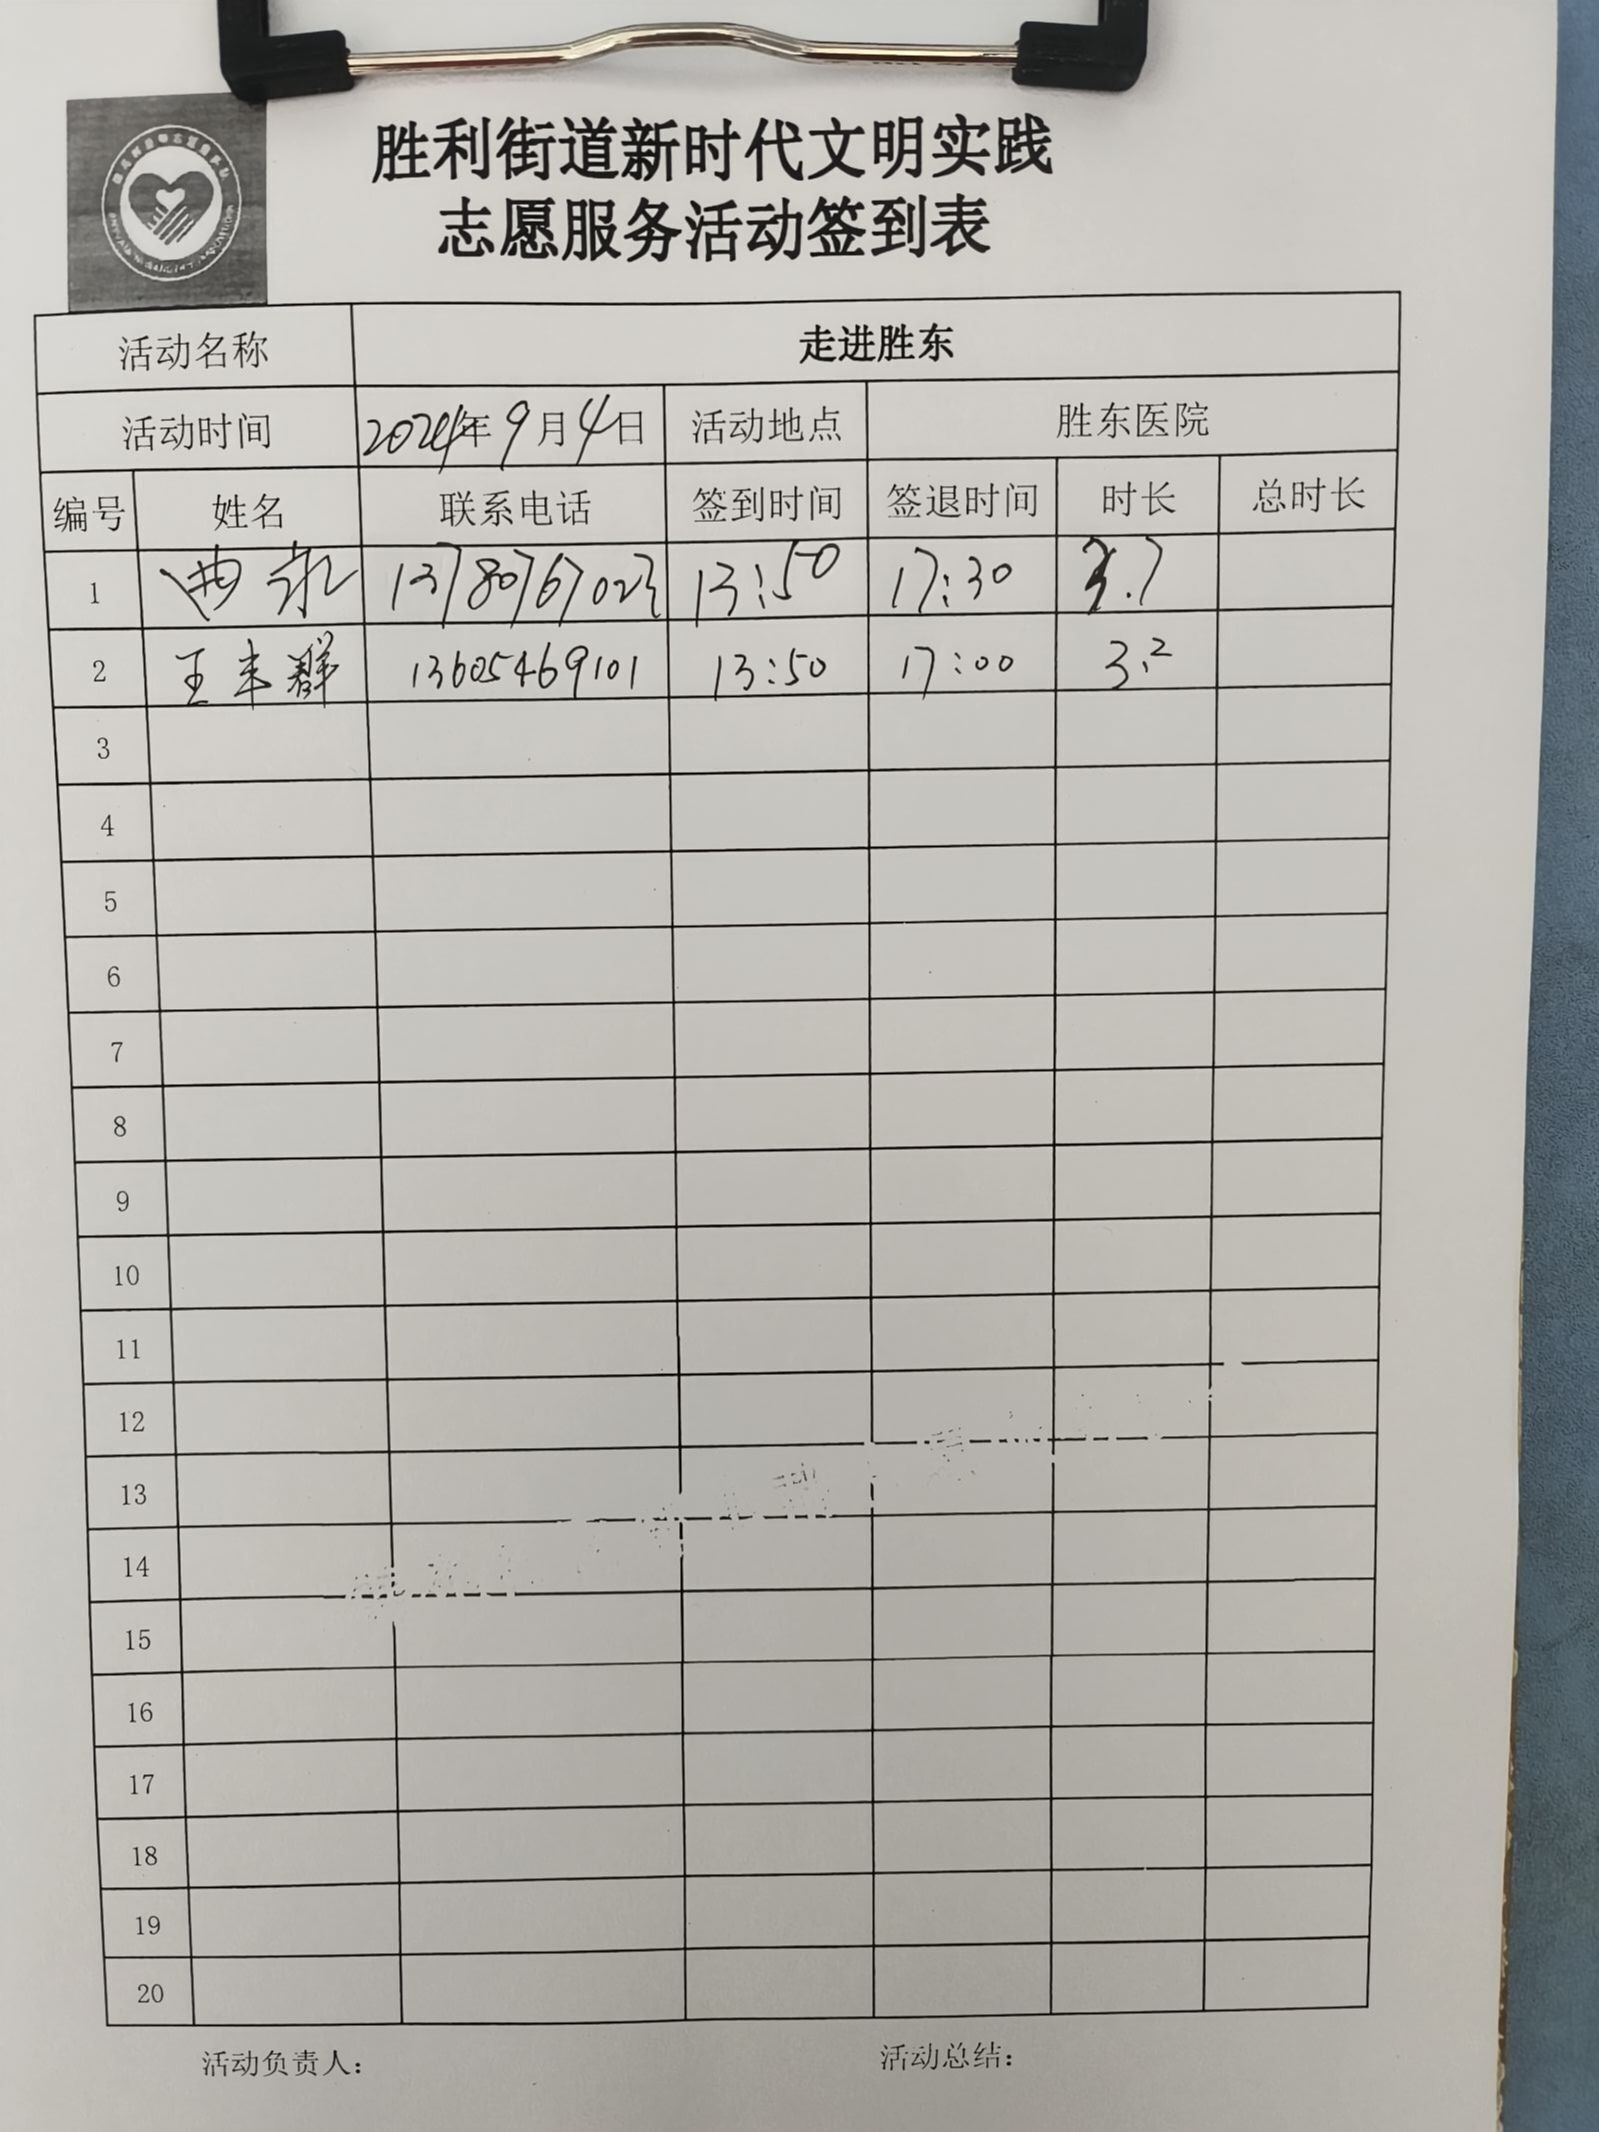 胜利街道新时代文明实践
志愿服务活动签到表
活动名称 走进胜东
活动时间 2024年9月4日 活动地点 胜东医院
编号 姓名 联系电话 签到时间 签退时间 时长 总时长
1 13780767023 13:50 17:30 3.7
2 王丰群 13605469101 13:50 17:00 3.2
3
4
5
6
7
8
9
10
11
12
13
14
15
16
17
18
19
20
活动负责人： 活动总结：